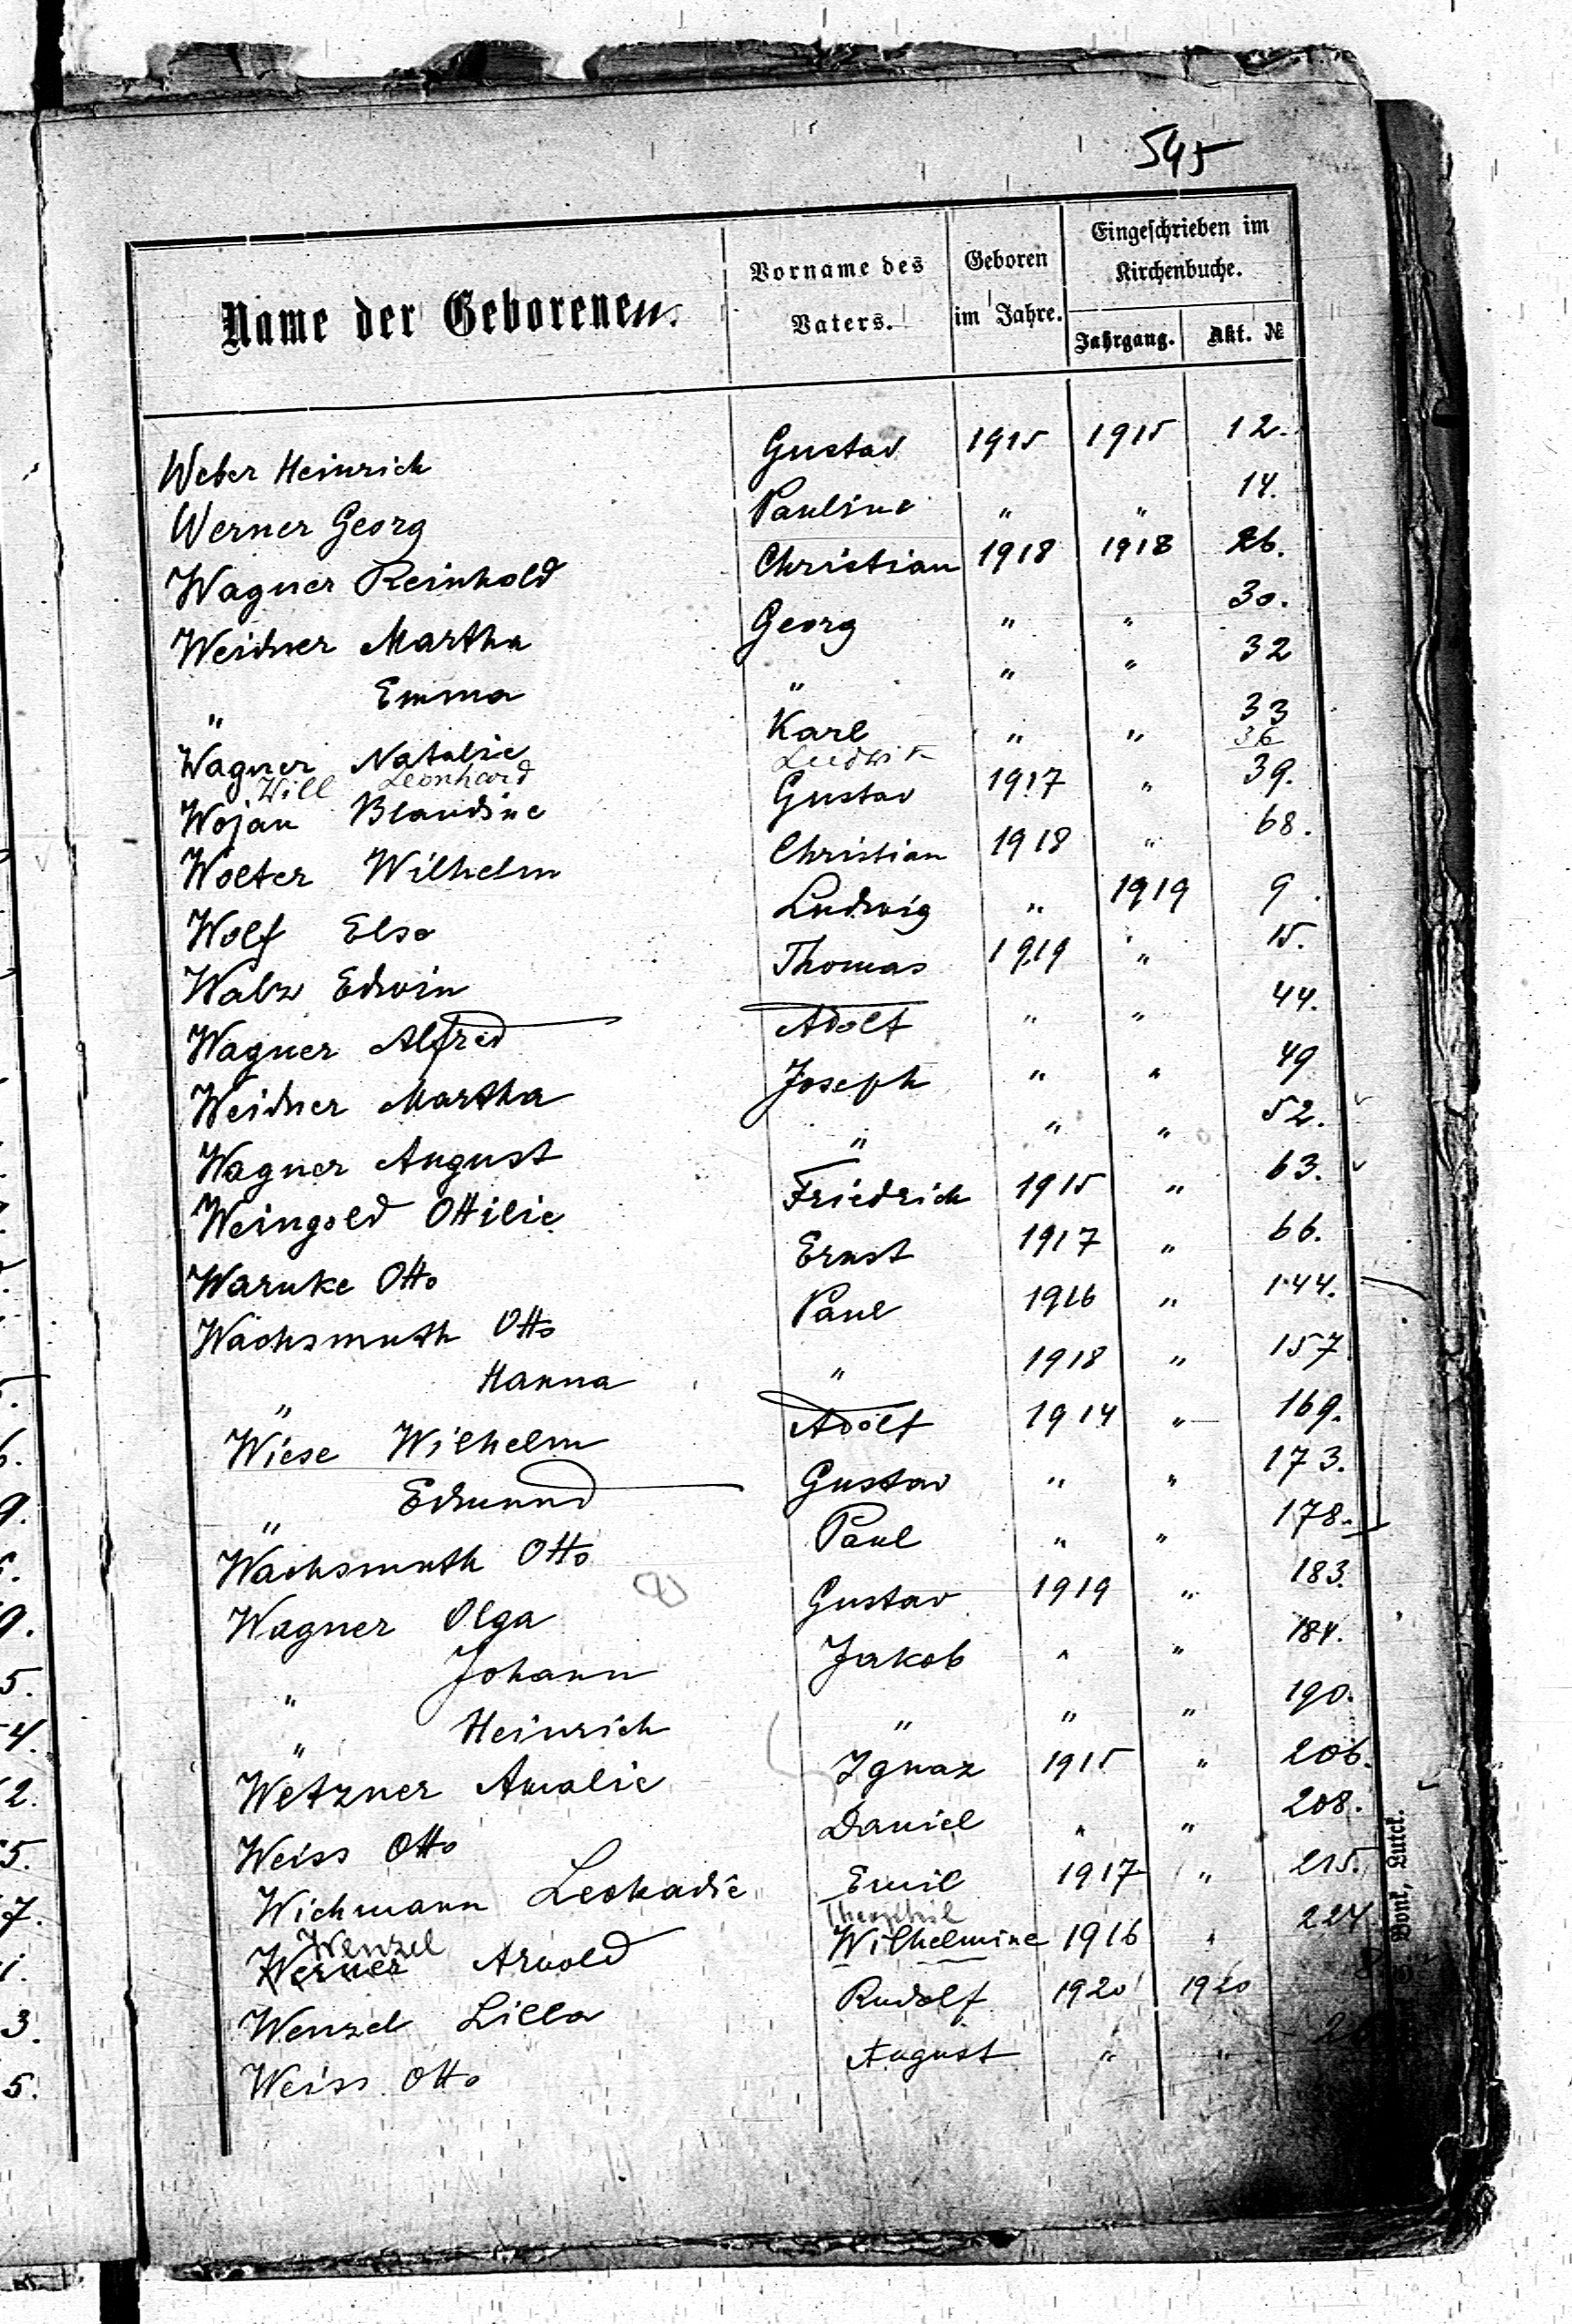 545
Name der Geborenen. Vorname des Vaters. Geboren im Jahre. Eingeschrieben im Kirchenbuche.
Jahrgang. Akt. №
Weber Heinrich Gustav 1915 1915 12.
Werner Georg Pauline " " 14.
Wagner Reinhold Christian 1918 1918 26.
Weidner Martha Georg " " 30.
" Emma " " " 32
Wagner Natalie Karl " " 33
Will Leonhard Ludwik 36
Wojan Blandine Gustav 1917 " 39.
Wolter Wilhelm Christian 1918 " 68.
Wolf Else Ludwig " 1919 9.
Walz Edwin Thomas 1919 " 15.
Wagner Alfred Adolf " " 44.
Weidner Martha Joseph " " 49
Wagner August " " " 52.
Weingold Ottilie Friedrich 1915 " 63.
Warnke Otto Ernst 1917 " 66.
Wachsmuth Otto Paul 1916 " 144.
" Hanna " 1918 " 157
Wiese Wilhelm Adolf 1914 " 169.
" Edmund Gustav " " 173.
Wachsmuth Otto Paul " " 178.
Wagner Olga Gustav 1919 " 183.
" Johann Jakob " " 184.
" Heinrich " " " 190.
Wetzner Amalie Ignaz 1915 " 206.
Weiss Otto Daniel " " 208.
Wichmann Leokadie Emil 1917 " 215.
Wenzel Theophil
Werner Arnold Wilhelmine 1916 " 224
Wenzel Lilla Rudolf 1920 1920
Weiss Otto August " "
Bonk, Lutck.